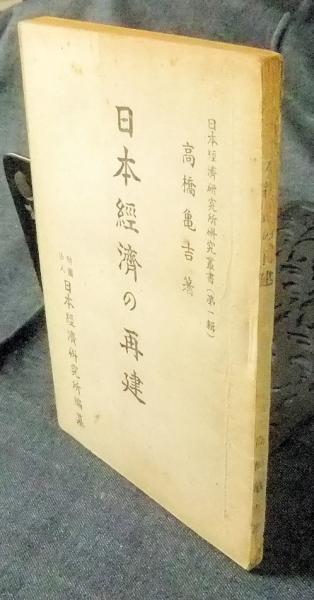 日本經濟研究所研究叢書（第一輯）
高橋亀吉著
日本經濟の再建
財團法人 日本經濟研究所編纂